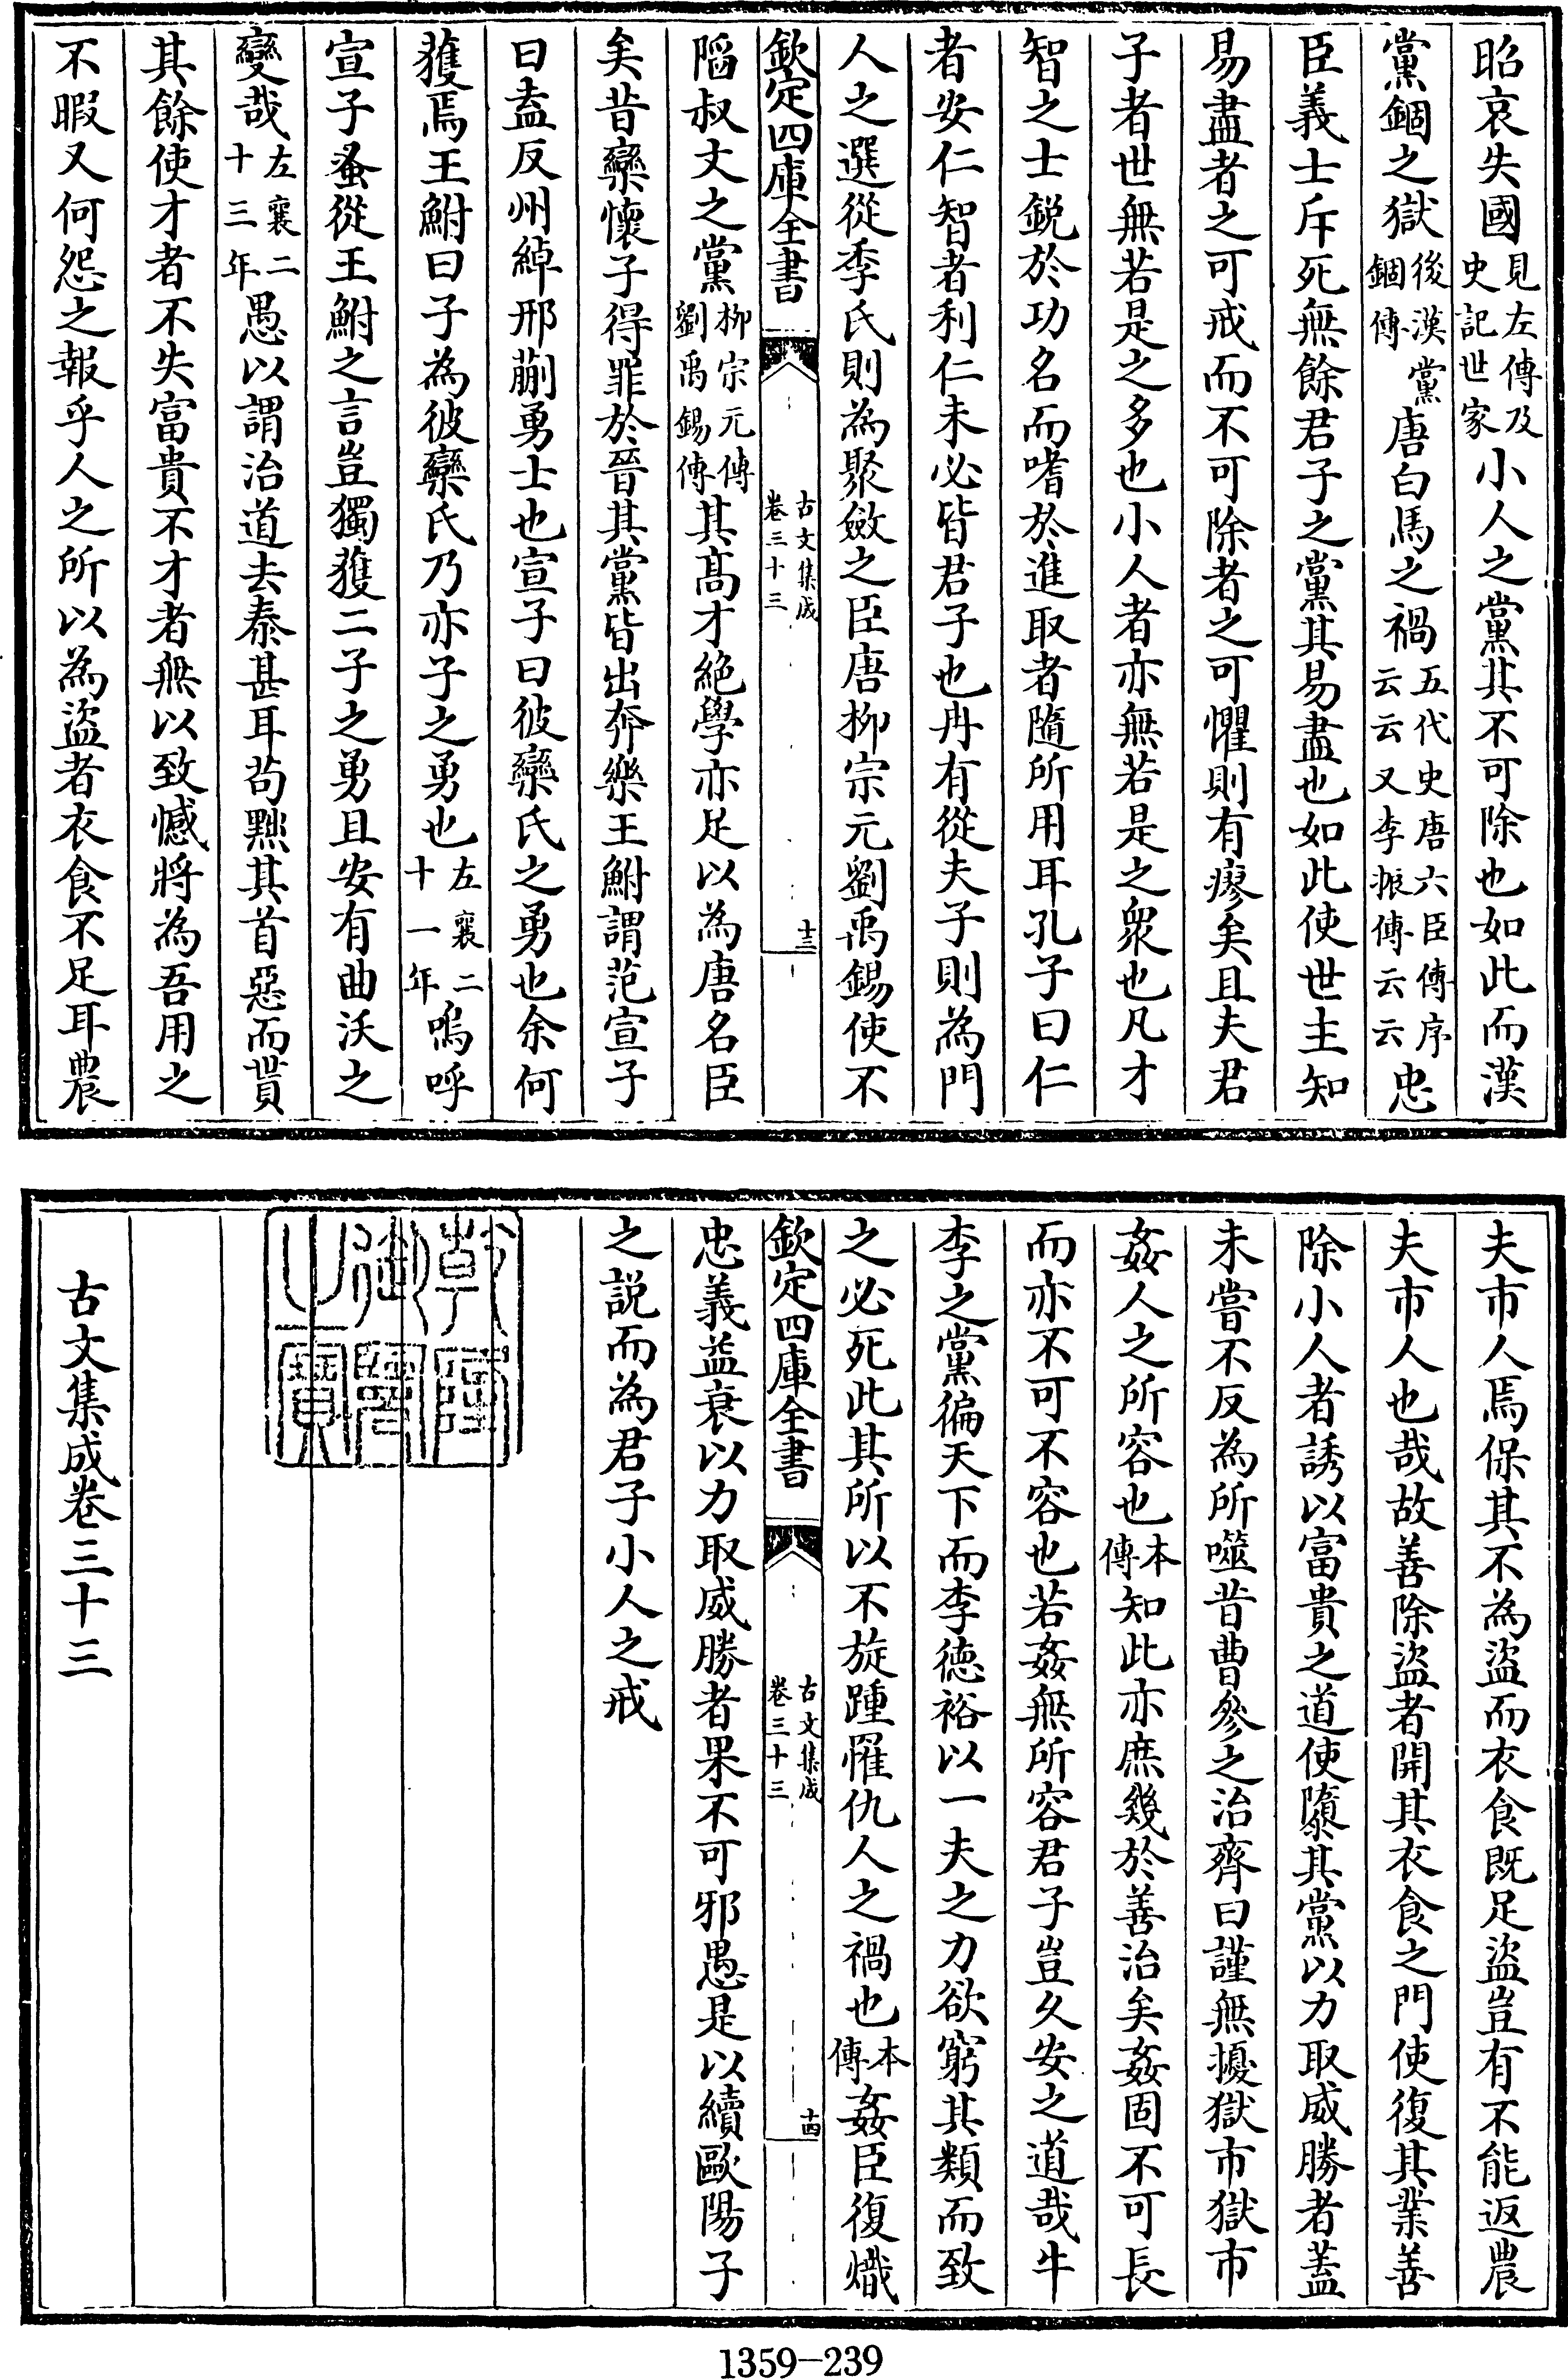 昭哀失國見左傳及史記世家小人之黨其不可除也如此而漢
黨錮之獄後漢黨錮傳唐白馬之禍五代史唐六臣傳序云云又李振傳云云忠
臣義士斥死無餘君子之黨其易盡也如此使世主知
易盡者之可戒而不可除者之可懼則有瘳矣且夫君
子者世無若是之多也小人者亦無若是之衆也凡才
智之士鋭於功名而嗜於進取者隨所用耳孔子曰仁
者安仁智者利仁未必皆君子也冉有從夫子則為門
人之選從季氏則為聚斂之臣唐柳宗元劉禹錫使不
欽定四庫全書
古文集成
卷三十三
十三
陷叔文之黨柳宗元傳劉禹錫傳其髙才絶學亦足以為唐名臣
矣昔欒懷子得罪於晉其黨皆出奔樂王鮒謂范宣子
曰盍反州綽邢蒯勇士也宣子曰彼欒氏之勇也余何
獲焉王鮒曰子為彼欒氏乃亦子之勇也左襄二十一年嗚呼
宣子蚤從王鮒之言豈獨獲二子之勇且安有曲沃之
變哉左襄二十三年愚以謂治道去泰甚耳苟黜其首惡而貰
其餘使才者不失富貴不才者無以致憾將為吾用之
不暇又何怨之報乎人之所以為盗者衣食不足耳農
夫市人焉保其不為盗而衣食既足盗豈有不能返農
夫市人也哉故善除盗者開其衣食之門使復其業善
除小人者誘以富貴之道使隳其黨以力取威勝者蓋
未嘗不反為所噬昔曹參之治齊曰謹無擾獄市獄市
姦人之所容也本傳知此亦庶幾於善治矣姦固不可長
而亦不可不容也若姦無所容君子豈久安之道哉牛
李之黨徧天下而李徳裕以一夫之力欲窮其類而致
之必死此其所以不旋踵罹仇人之禍也本傳姦臣復熾
欽定四庫全書
古文集成
卷三十三
十四
忠義益衰以力取威勝者果不可邪愚是以續歐陽子
之説而為君子小人之戒
乾隆御覽之寶
古文集成卷三十三
1359-239